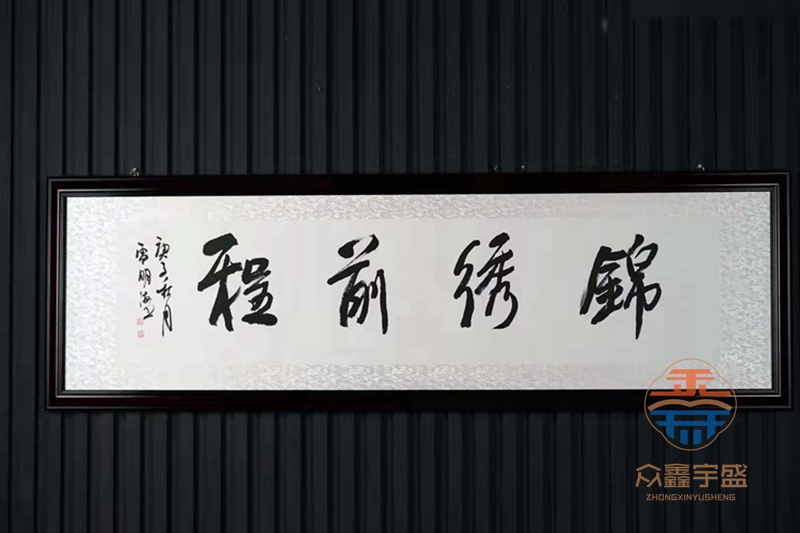 錦绣前程
庚子秋月
雷明海书
众鑫宇盛
ZHONGXINYUSHENG